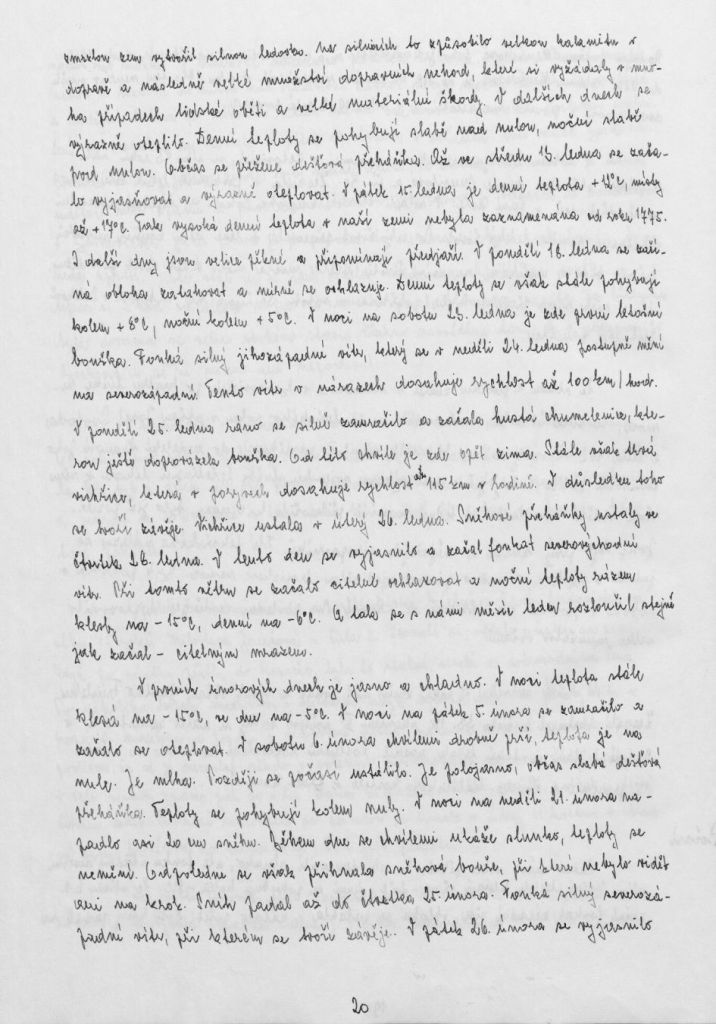 zmrzlou zem vytvořil silnou ledovku. Na silnicích to způsobilo velkou kalamitu v
dopravě a následně velké množství dopravních nehod, které si vyžádaly v mno-
ha případech lidské oběti a velké materiální škody. V dalších dnech se
výrazně oteplilo. Denní teploty se pohybují slabě nad nulou, noční slabě
pod nulou. Občas se přežene dešťová přeháňka. Až ve středu 13. ledna se zača-
lo vyjasňovat a výrazně oteplovat. V pátek 15. ledna je denní teplota +12°C, místy
až +17°C. Tak vysoká denní teplota v naší zemi nebyla zaznamenána od roku 1775.
I další dny jsou velice pěkné a připomínají předjaří. V pondělí 18. ledna se začí-
ná obloha zatahovat a mírně se ochlazuje. Denní teploty se však stále pohybují
kolem +8°C, noční kolem +5°C. V noci na sobotu 23. ledna je zde první letošní
bouřka. Fouká silný jihozápadní vítr, který se v neděli 24. ledna postupně mění
na severozápadní. Tento vítr v nárazech dosahuje rychlost až 100 km/hod.
V pondělí 25. ledna ráno se silně zamračilo a začala hustá chumelenice, kte-
rou ještě doprovázela bouřka. Od této chvíle je zde opět zima. Stále však trvá
vichřice, která v poryvech dosahuje rychlost až 115 km v hodině. V důsledku toho
se tvoří závěje. Vichřice ustala v úterý 26. ledna. Sněhové přeháňky ustaly ve
čtvrtek 28. ledna. V tento den se vyjasnilo a začal foukat severovýchodní
vítr. Při tomto větru se začalo citelně ochlazovat a noční teploty rázem
klesly na -15°C, denní na -6°C. A tak se s námi měsíc leden rozloučil stejně
jak začal - citelným mrazem.
V prvních únorových dnech je jasno a chladno. V noci teplota stále
klesá na -15°C, ve dne na -5°C. V noci na pátek 5. února se zamračilo a
začalo se oteplovat. V sobotu 6. února chvílemi drobně prší, teplota je na
nule. Je mlha. Později se počasí ustálilo. Je polojasno, občas slabá dešťová
přeháňka. Teploty se pohybují kolem nuly. V noci na neděli 21. února na-
padlo asi 20 cm sněhu. Během dne se chvílemi ukáže slunko, teploty se
nemění. Odpoledne se však přihnala sněhová bouře, při které nebylo vidět
ani na krok. Sníh padal až do čtvrtka 25. února. Fouká silný severozá-
padní vítr, při kterém se tvoří závěje. V pátek 26. února se vyjasnilo
20